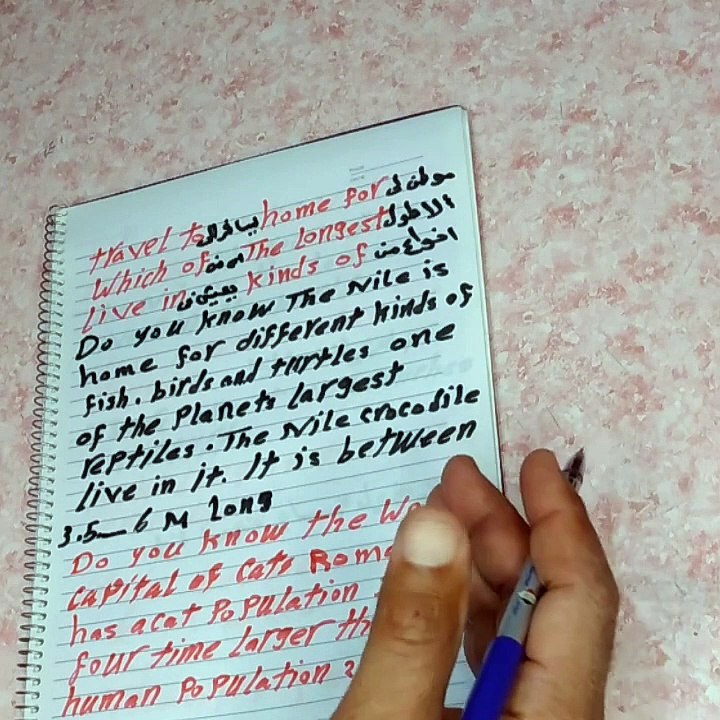 travel to يسافر الى home for موطن ل
Which of اى من The Longest الاطول
live in يعيش فى kinds of انواع من
Do you know The Nile is
home for different kinds of
fish. birds and turtles one
of the Planets largest
reptiles. The Nile crocodile
live in it. It is between
3.5 — 6 M long
Do you know the
capital of cats
has a cat Population
four time larger
human Population ?